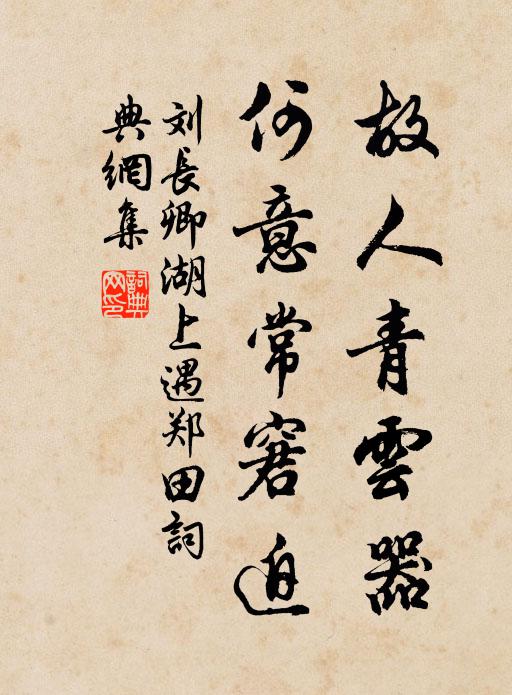 故人青雲器
何意常窘迫
刘長卿湖上遇郑田詞
典網集
詞典网印